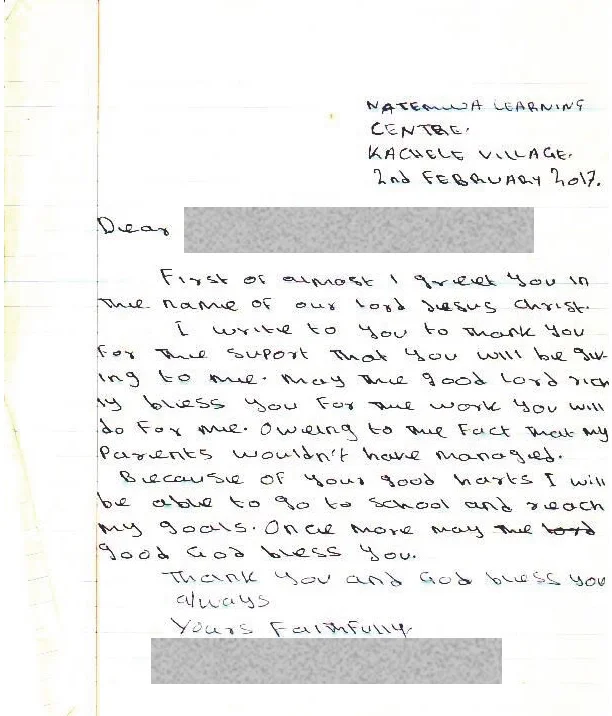 NATEMWA LEARNING
CENTRE.
KACHELE VILLAGE.
2nd FEBRUARY 2017.
Dear
First of almost I greet you in
the name of our lord Jesus Christ.
I write to you to thank you
For the suport that you will be giv
ing to me. May the good Lord rich
ly bless you for the work you will
do for me. Oweing to the fact that my
Parents wouldn't have managed.
Because of your good harts I will
be able to go to school and reach
my goals. Once more may the lord
good God bless you.
Thank you and God bless you
always
Yours Faithfully